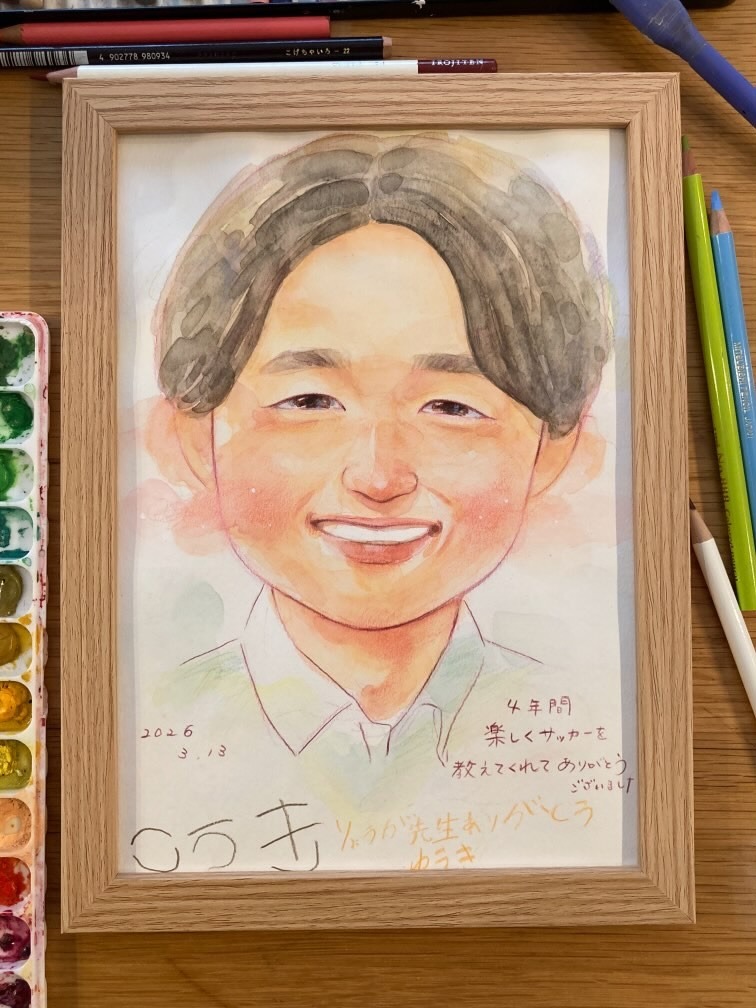 4 902778 980934 こげちゃいろ - 22
IROJITEN
2026
3.13
4年間
楽しくサッカーを
教えてくれて ありがとう
ございました
りょうが先生ありがとう
ゆうき